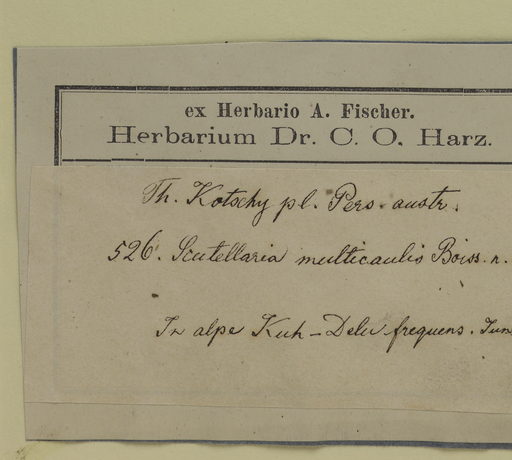 ex Herbario A. Fischer.
Herbarium Dr. C. O. Harz.
Th. Kotschy pl. Pers. austr.
526. Scutellaria multicaulis Boiss. n.
In alpe Kuh-Delu frequens. Jun